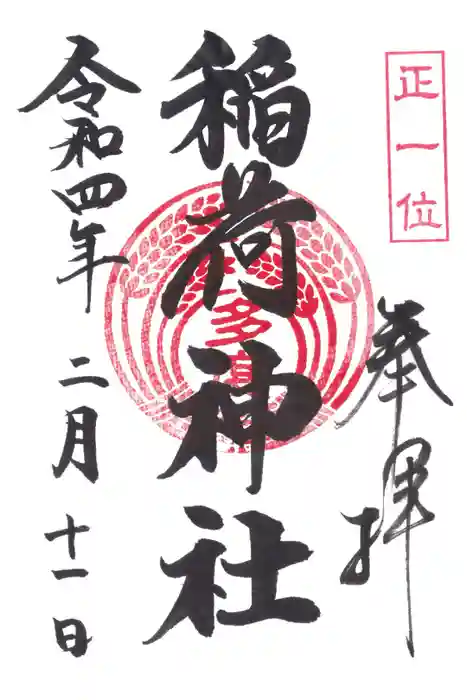 正一位
奉拝
稲荷神社
令和四年 二月 十一日